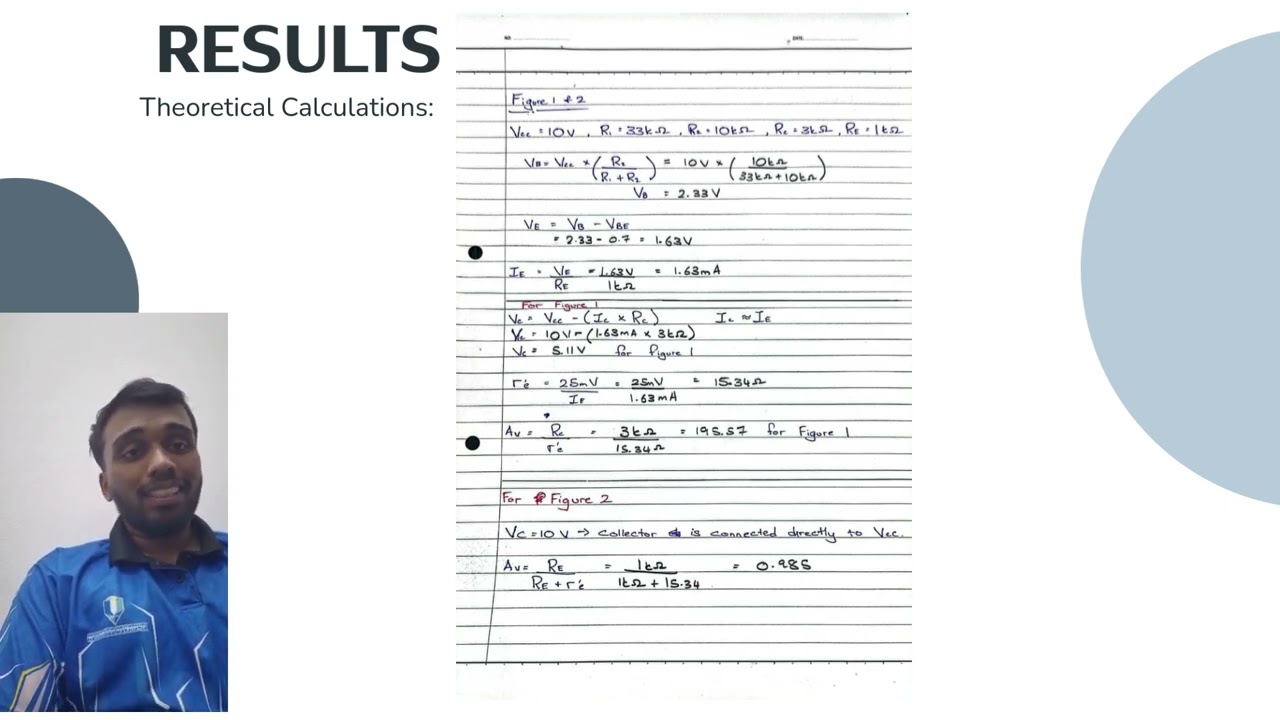 RESULTS
Theoretical Calculations:
NO.
DATE:
Figure 1 & 2
Vcc = 10V , R1 = 33kΩ , R2 = 10kΩ , Rc = 3kΩ , RE = 1kΩ
VB = Vcc × (R2 / R1 + R2) = 10V × (10kΩ / 33kΩ + 10kΩ)
VB = 2.33V
VE = VB - VBE
= 2.33 - 0.7 = 1.63V
IE = VE / RE = 1.63V / 1kΩ = 1.63mA
For Figure 1
Vc = Vcc - (Ic × Rc) Ic ≈ IE
Vc = 10V - (1.63mA × 3kΩ)
Vc = 5.11V for Figure 1
r'e = 25mV / IE = 25mV / 1.63mA = 15.34Ω
Av = Rc / r'e = 3kΩ / 15.34Ω = 195.57 for Figure 1
For Figure 2
Vc = 10V → collector is connected directly to Vcc.
Av = RE / RE + r'e = 1kΩ / 1kΩ + 15.34 = 0.985